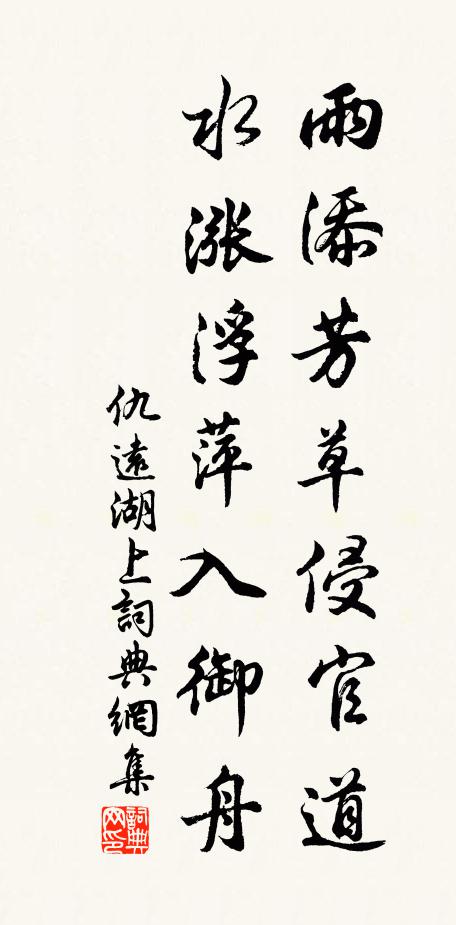 雨添芳草侵官道
水漲浮萍入御舟
仇遠湖上詞典網集
詞典网印